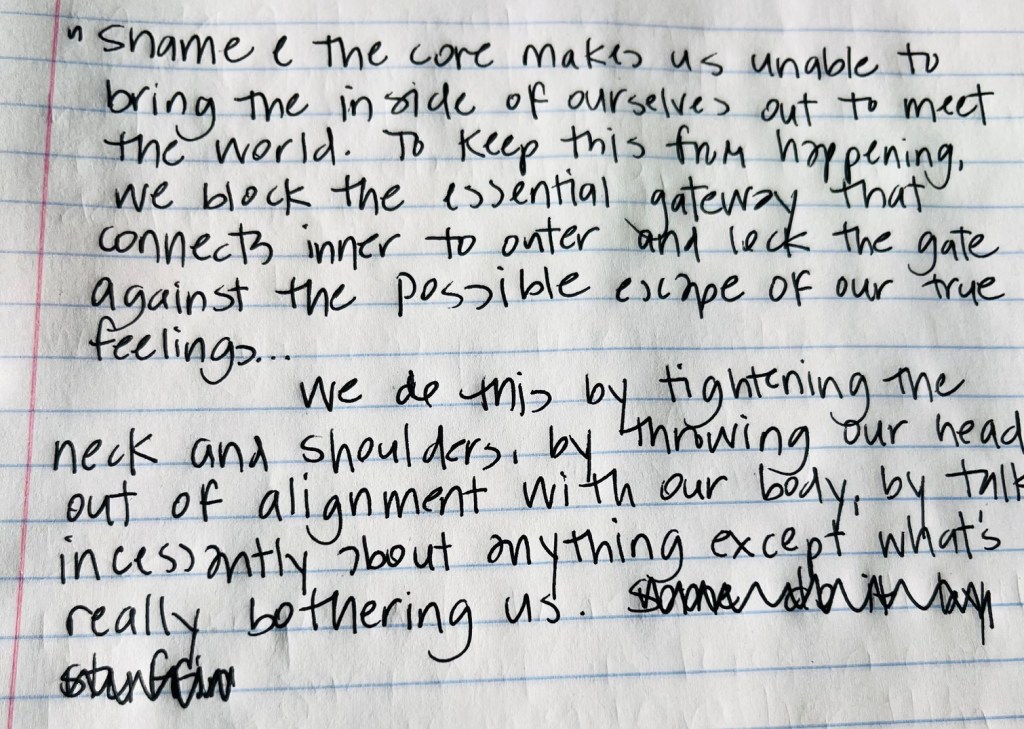 " Shame @ the core makes us unable to
bring the inside of ourselves out to meet
the world. To keep this from happening,
we block the essential gateway that
connects inner to outer and lock the gate
against the possible escape of our true
feelings...
we do this by tightening the
neck and shoulders, by throwing our head
out of alignment with our body, by talk
incessantly about anything except what's
really bothering us.